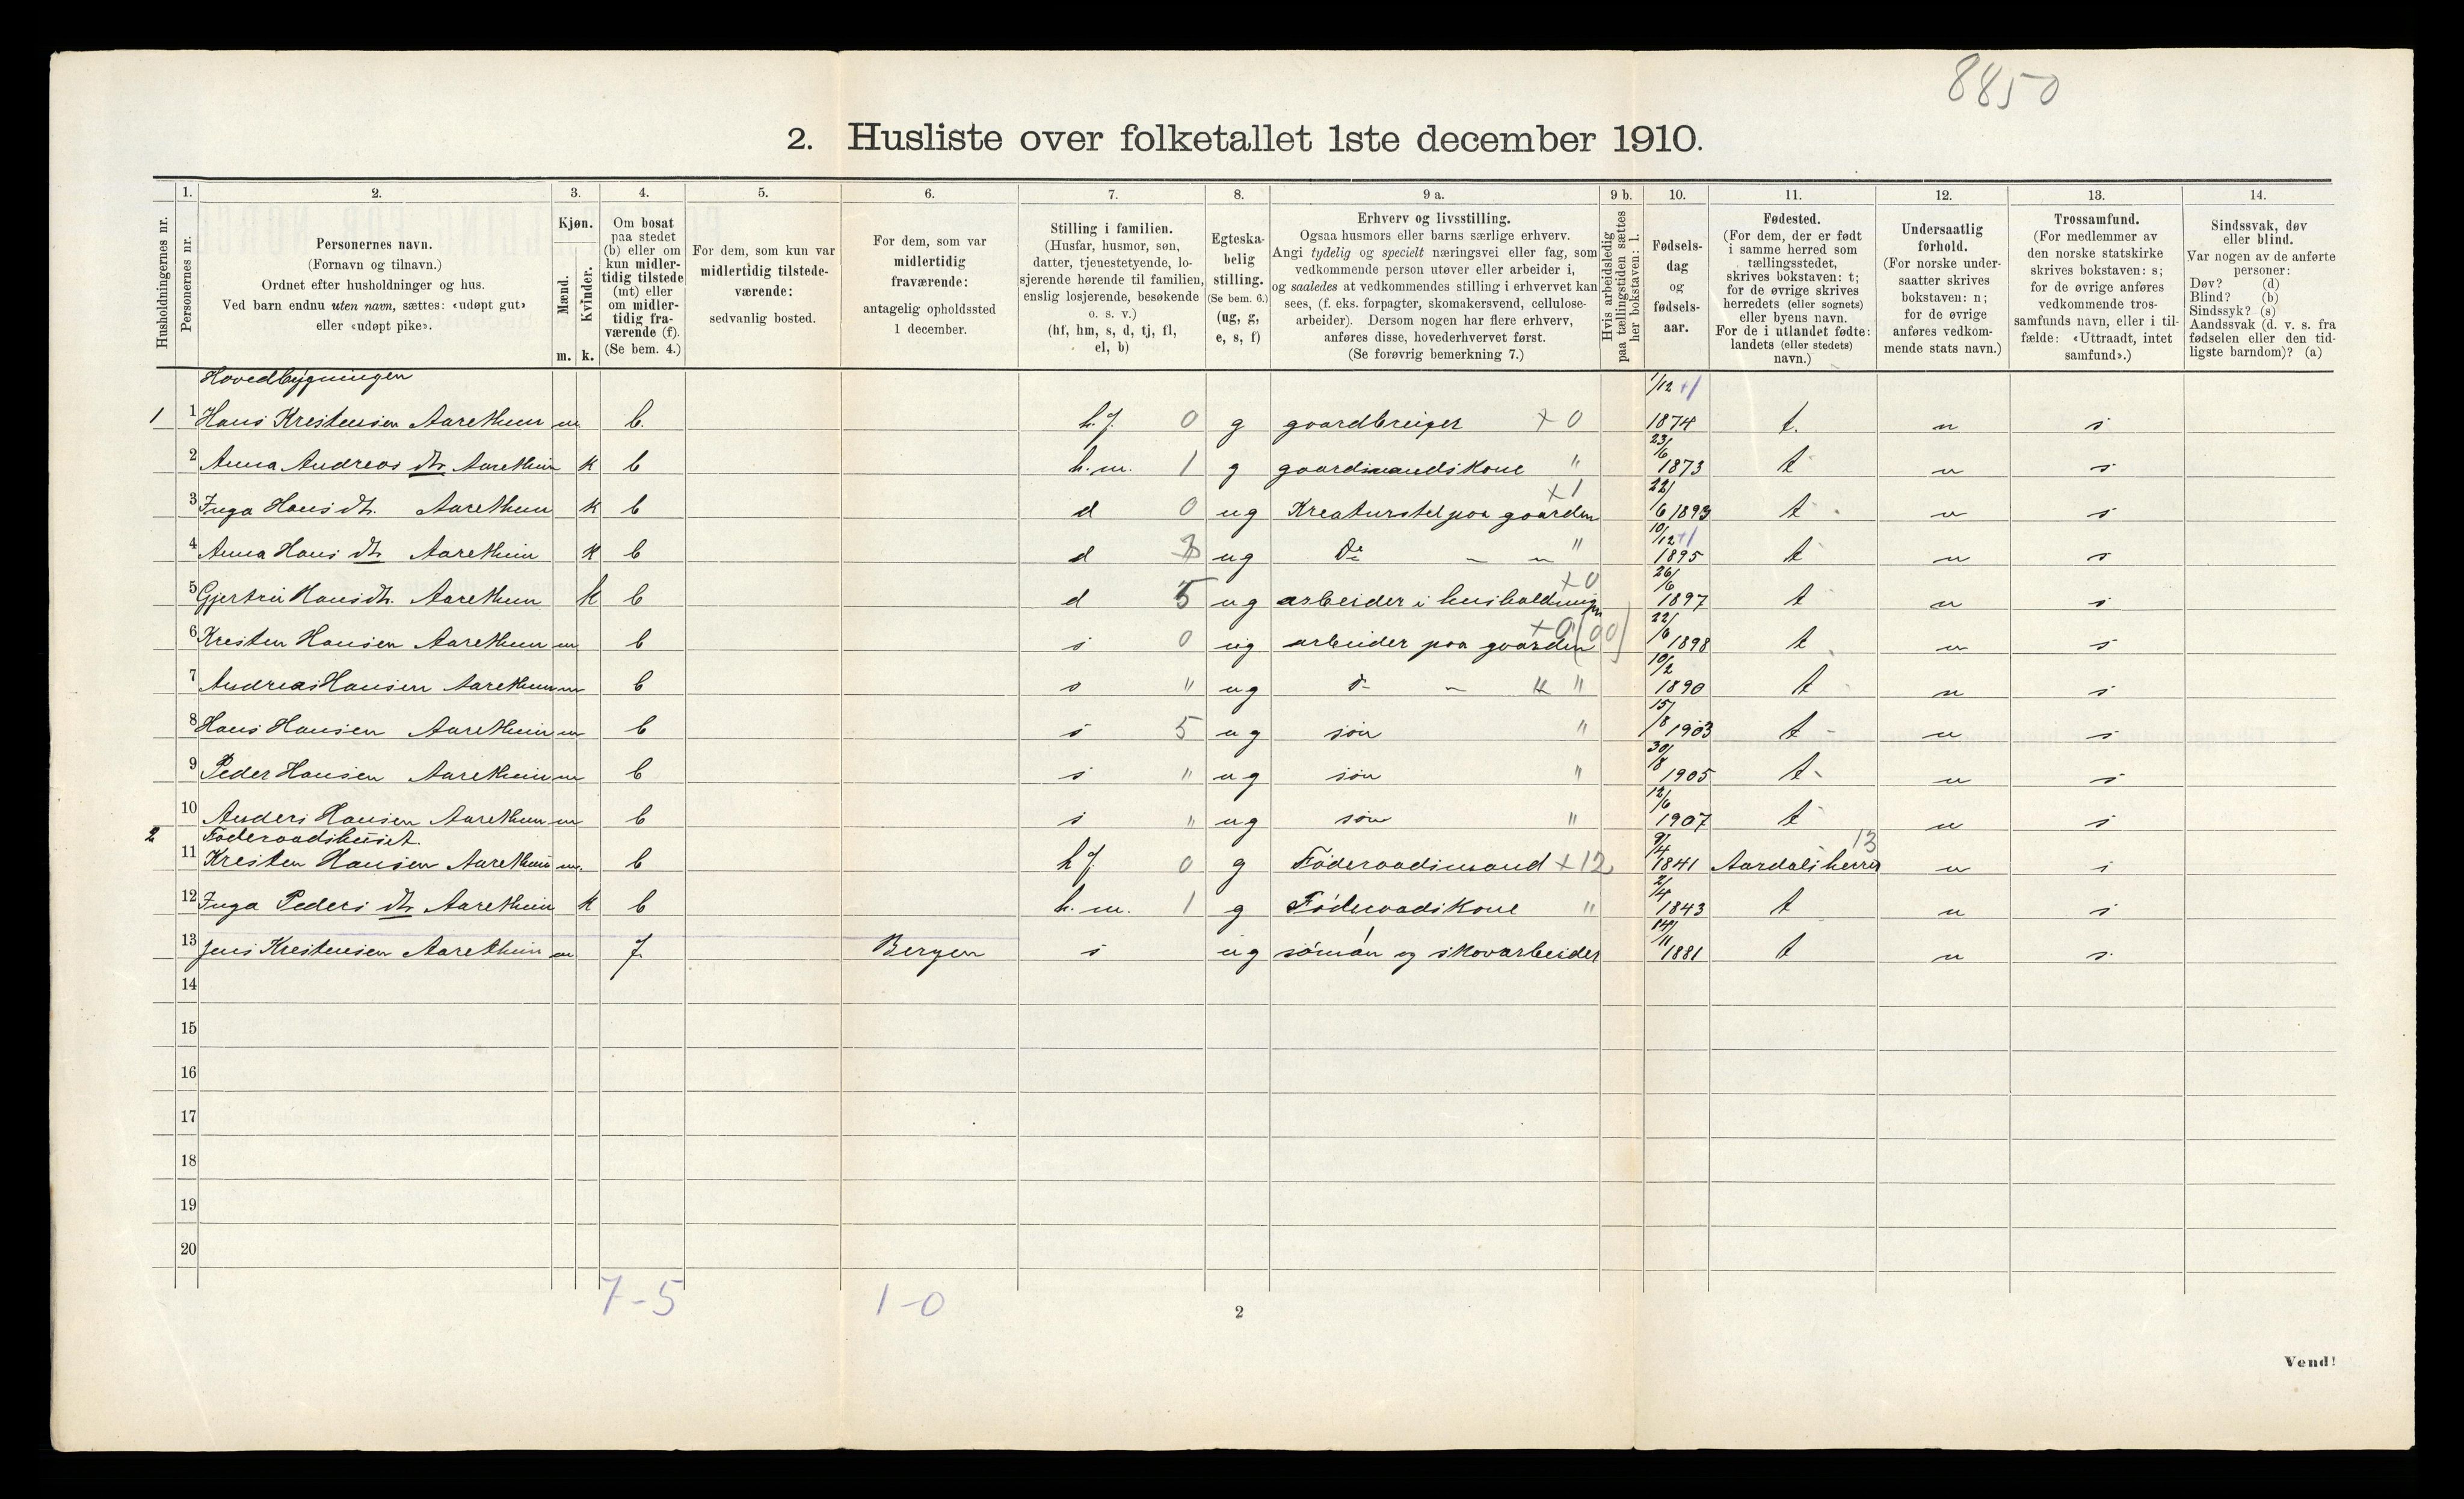 8850
2. Husliste over folketallet 1ste december 1910.
Husholdningernes nr.
1.
Personernes nr.
2.
Personernes navn.
(Fornavn og tilnavn.)
Ordnet efter husholdninger og hus.
Ved barn endnu uten navn, sættes: «udøpt gut»
eller «udøpt pike».
3.
Kjøn.
Mænd.
Kvinder.
m. k.
4.
Om bosat
paa stedet
(b) eller om
kun midler-
tidig tilstede
(mt) eller
om midler-
tidig fra-
værende (f).
(Se bem. 4.)
5.
For dem, som kun var
midlertidig tilstede-
værende:
sedvanlig bosted.
6.
For dem, som var
midlertidig
fraværende:
antagelig opholdssted
1 december.
7.
Stilling i familien.
(Husfar, husmor, søn,
datter, tjenestetyende, lo-
sjerende hørende til familien,
enslig losjerende, besøkende
o. s. v.)
(hf, hm, s, d, tj, fl,
el, b)
8.
Egteska-
belig
stilling.
(Se bem. 6.)
(ug, g,
e, s, f)
9 a.
Erhverv og livsstilling.
Ogsaa husmors eller barns særlige erhverv.
Angi tydelig og specielt næringsvei eller fag, som
vedkommende person utøver eller arbeider i,
og saaledes at vedkommendes stilling i erhvervet kan
sees, (f. eks. forpagter, skomakersvend, cellulose-
arbeider). Dersom nogen har flere erhverv,
anføres disse, hovederhvervet først.
(Se forøvrig bemerkning 7.)
9 b.
Hvis arbeidsledig
paa tællingstiden sættes
her bokstaven: l.
10.
Fødsels-
dag
og
fødsels-
aar.
11.
Fødested.
(For dem, der er født
i samme herred som
tællingsstedet,
skrives bokstaven: t;
for de øvrige skrives
herredets (eller sognets)
eller byens navn.
For de i utlandet fødte:
landets (eller stedets)
navn.)
12.
Undersaatlig
forhold.
(For norske under-
saatter skrives
bokstaven: n;
for de øvrige
anføres vedkom-
mende stats navn.)
13.
Trossamfund.
(For medlemmer av
den norske statskirke
skrives bokstaven: s;
for de øvrige anføres
vedkommende tros-
samfunds navn, eller i til-
fælde: «Uttraadt, intet
samfund».)
14.
Sindssvak, døv
eller blind.
Var nogen av de anførte
personer:
Døv? (d)
Blind? (b)
Sindssyk? (s)
Aandssvak (d. v. s. fra
fødselen eller den tid-
ligste barndom)? (a)
Hovedbygningen
1 1 Hans Krestensen Aarethun m b. h.f. 0 g gaardbruger +0 1/12 +1 1874 t. n s
2 Anna Andreas dtr Aarethun k b h.m. 1 g gaardmandskone " 23/6 1873 t n s
3 Inga Hans dtr. Aarethun k b d 0 ug Kreaturstel paa gaarden +1 22/6 1893 t n s
4 Anna Hans dtr Aarethun k b d ug do - - " 10/12 +1 1895 t n s
5 Gjertru Hans dtr. Aarethun k b d 5 ug arbeider i husholdningen +0 26/6 1897 t n s
6 Kresten Hansen Aarethun m b s 0 ug arbeider paa gaarden +0 (00) 22/6 1898 t n s
7 Andreas Hansen Aarethun m b s " ug do - " " 10/2 1890 t n s
8 Hans Hansen Aarethun m b s 5 ug søn " 15/8 1903 t n s
9 Peder Hansen Aarethun m b s " ug søn " 30/8 1905 t n s
10 Anders Hansen Aarethun m b s " ug søn " 12/6 1907 t n s
2 Føderaadshuset.
11 Kresten Hansen Aarethun m. b hf 0 g Føderaadsmand +12 9/4 1841 Aardals herred 13 n s
12 Inga Peders dtr Aarethun k b h.m. 1 g Føderaadskone " 2/4 1843 t n s
13 Jens Krestensen Aarethun m f Bergen s ug søman og skovarbeider 14/11 1881 t n s
14
15
16
17
18
19
20
7-5 1-0
2
Vend!